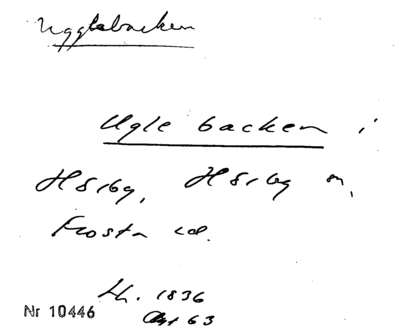 Ugglebacken
Ugle backen i
Hörby, Hörby sn,
Frosta hd.
Lh. 1836
Akt 63
Nr 10446